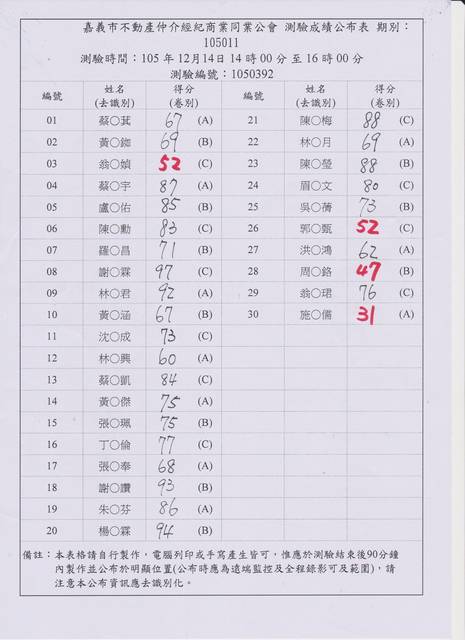 嘉義市不動產仲介經紀商業同業公會 測驗成績公布表 期別：
105011
測驗時間：105 年 12月14日 14 時 00 分 至 16 時 00 分
測驗編號：1050392
編號 姓名(去識別) 得分(卷別) 編號 姓名(去識別) 得分(卷別)
01 蔡○萁 67 (A) 21 陳○梅 88 (C)
02 黃○鉫 69 (B) 22 林○月 69 (A)
03 翁○媜 52 (C) 23 陳○瑩 88 (B)
04 蔡○宇 87 (A) 24 眉○文 80 (C)
05 盧○佑 85 (B) 25 吳○蒨 73 (B)
06 陳○勳 83 (C) 26 郭○甄 52 (C)
07 羅○昌 71 (B) 27 洪○鴻 62 (A)
08 謝○霖 97 (C) 28 周○銘 47 (B)
09 林○君 92 (A) 29 翁○珺 76 (C)
10 黃○涵 67 (B) 30 施○備 31 (A)
11 沈○成 73 (C)
12 林○興 60 (A)
13 蔡○凱 84 (C)
14 黃○傑 75 (A)
15 張○珮 75 (B)
16 丁○倫 77 (C)
17 張○奉 68 (A)
18 謝○讚 93 (B)
19 朱○芬 86 (A)
20 楊○霖 94 (B)
備註：本表格請自行製作，電腦列印或手寫產生皆可，惟應於測驗結束後90分鐘
內製作並公布於明顯位置(公布時應為遠端監控及全程錄影可及範圍)，請
注意本公布資訊應去識別化。